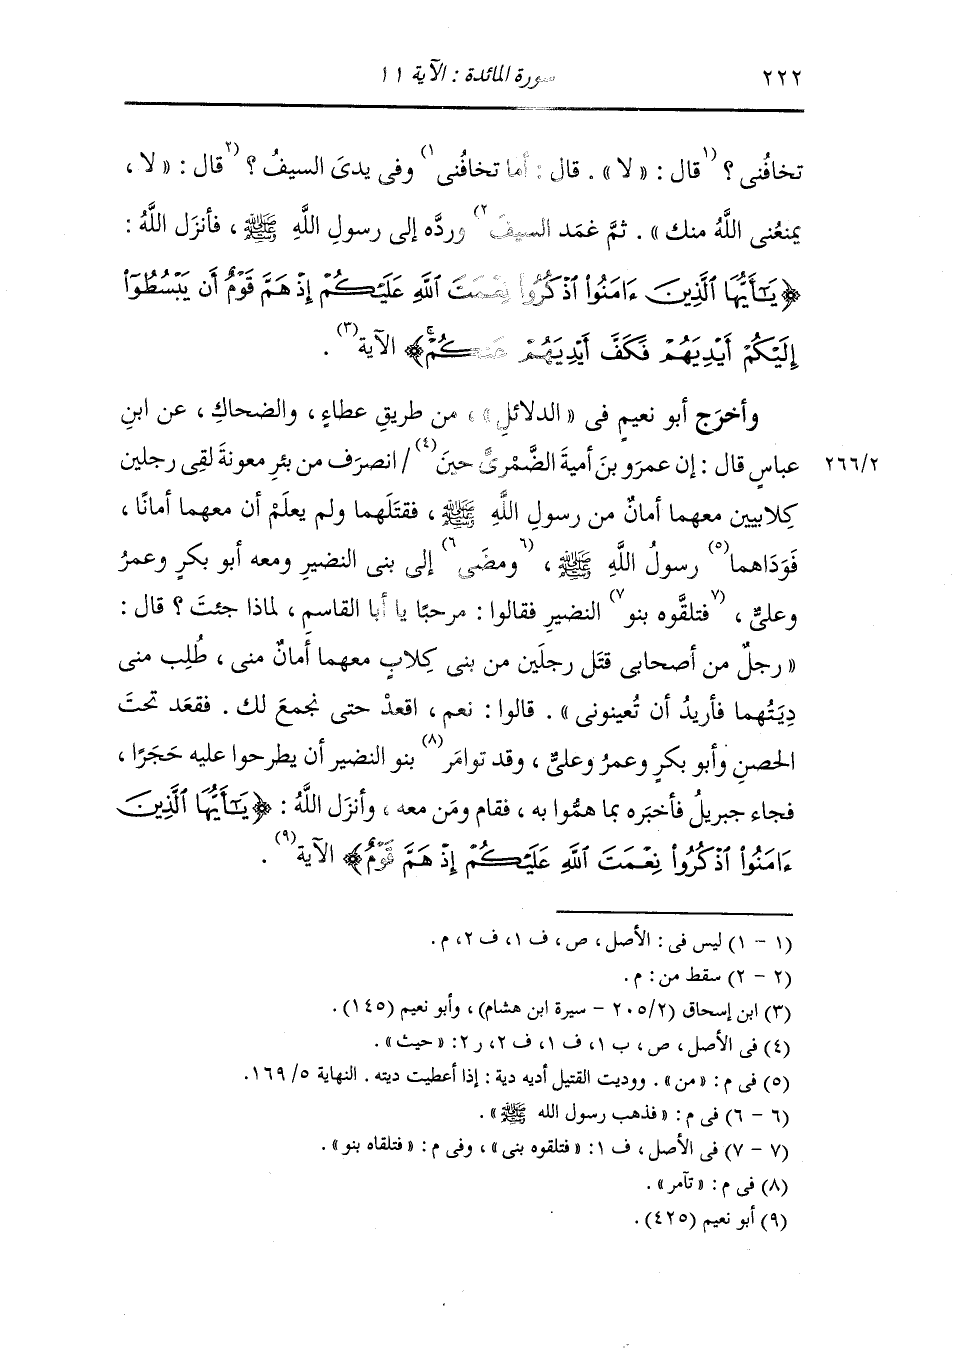 ٢٢٢ سورة المائدة : الآية ١١
تخافُنى ؟ (١قال : « لا » . قال : أما تخافُنى١) وفى يدىَ السيفُ ؟ (٢قال : « لا ،
يمنعُنى اللَّهُ منك » . ثمَّ غمَد السيفَ٢) وردَّه إلى رسولِ اللَّهِ ﷺ ، فأنزَل اللَّهُ :
﴿يَٰٓأَيُّهَا ٱلَّذِينَ ءَامَنُوا۟ ٱذْكُرُوا۟ نِعْمَتَ ٱللَّهِ عَلَيْكُمْ إِذْ هَمَّ قَوْمٌ أَن يَبْسُطُوٓا۟
إِلَيْكُمْ أَيْدِيَهُمْ فَكَفَّ أَيْدِيَهُمْ عَنكُمْ﴾ الآية(٣) .
وأخرَج أبو نعيمٍ فى « الدلائلِ » ، من طريقِ عطاءٍ ، والضحاكِ ، عن ابنِ
٢٦٦/٢ عباسٍ قال : إن عمرَو بنَ أميةَ الضَّمْرىَّ حينَ(٤) / انصرَف من بئرِ معونةَ لقِى رجلين
كِلابيين معهما أمانٌ من رسولِ اللَّهِ ﷺ ، فقتَلَهما ولم يعلَمْ أن معهما أمانًا ،
فَوَدَاهما(٥) رسولُ اللَّهِ ﷺ ، (٦ومضَى٦) إلى بنى النضيرِ ومعه أبو بكرٍ وعمرُ
وعلىٌّ ، (٧فتلقَّوه بنو٧) النضيرِ فقالوا : مرحبًا يا أبا القاسمِ ، لماذا جئتَ ؟ قال :
« رجلٌ من أصحابى قتَل رجلَين من بنى كِلابٍ معهما أمانٌ منى ، طُلِب منى
دِيَتُهما فأريدُ أن تُعينونى » . قالوا : نعم ، اقعدْ حتى نجمعَ لك . فقعَد تحتَ
الحصنِ وأبو بكرٍ وعمرُ وعلىٌّ ، وقد توامَر(٨) بنو النضيرِ أن يطرحوا عليه حَجَرًا ،
فجاء جبريلُ فأخبَره بما همُّوا به ، فقام ومَن معه ، وأنزَل اللَّهُ : ﴿يَٰٓأَيُّهَا ٱلَّذِينَ
ءَامَنُوا۟ ٱذْكُرُوا۟ نِعْمَتَ ٱللَّهِ عَلَيْكُمْ إِذْ هَمَّ قَوْمٌ﴾ الآية(٩) .
(١ - ١) ليس فى : الأصل ، ص ، ف ١ ، ف ٢ ، م .
(٢ - ٢) سقط من : م .
(٣) ابن إسحاق (٢٠٥/٢ - سيرة ابن هشام) ، وأبو نعيم (١٤٥) .
(٤) فى الأصل ، ص ، ب ١ ، ف ١ ، ف ٢ ، ر ٢ : « حيث » .
(٥) فى م : « من » . ووديت القتيل أديه دية : إذا أعطيت ديته . النهاية ١٦٩/٥ .
(٦ - ٦) فى م : « فذهب رسول الله ﷺ » .
(٧ - ٧) فى الأصل ، ف ١ : « فتلقوه بنى » ، وفى م : « فتلقاه بنو » .
(٨) فى م : « تآمر » .
(٩) أبو نعيم (٤٢٥) .